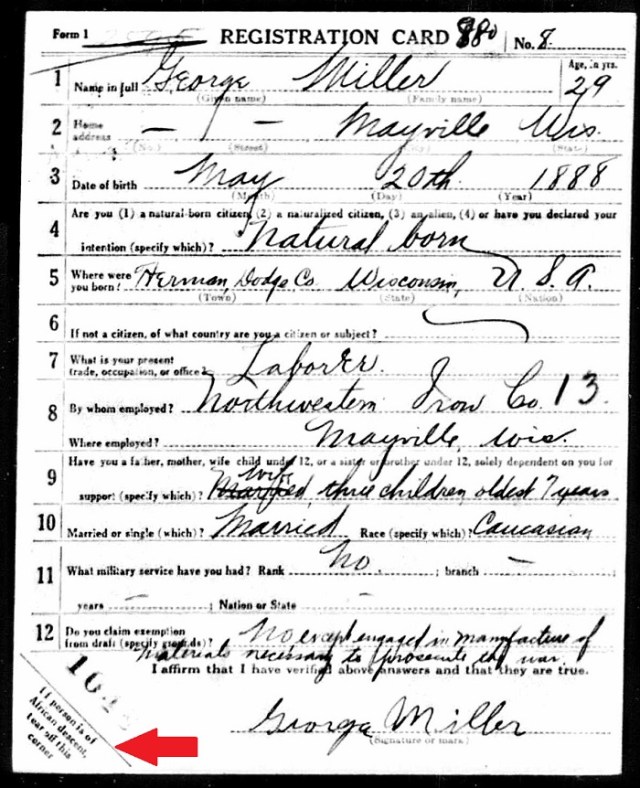 Form 1 REGISTRATION CARD 880 No. 8
1 Name in full George Miller Age, in yrs. 29
(Given name) (Family name)
2 Home address — — Mayville Wis.
(No.) (Street) (City) (State)
3 Date of birth May 20th 1888
(Month) (Day) (Year)
Are you (1) a natural-born citizen, (2) a naturalized citizen, (3) an alien, (4) or have you declared your
4 intention (specify which)? Natural born
5 Where were you born? Herman, Dodge Co. Wisconsin, U.S.A.
(Town) (State) (Nation)
6 If not a citizen, of what country are you a citizen or subject?
7 What is your present trade, occupation, or office? Laborer.
8 By whom employed? Northwestern Iron Co. 13
Where employed? Mayville, Wis.
9 Have you a father, mother, wife child under 12, or a sister or brother under 12, solely dependent on you for
wife
support (specify which)? Married, three children oldest 7 years
10 Married or single (which)? Married Race (specify which)? Caucasian
11 What military service have you had? Rank No ; branch —
years — ; Nation or State —
12 Do you claim exemption from draft (specify grounds)? No except engaged in manufacture of
materials necessary to prosecute the war.
I affirm that I have verified above answers and that they are true.
George Miller
(Signature or mark)
If person is of
African descent,
tear off this
corner